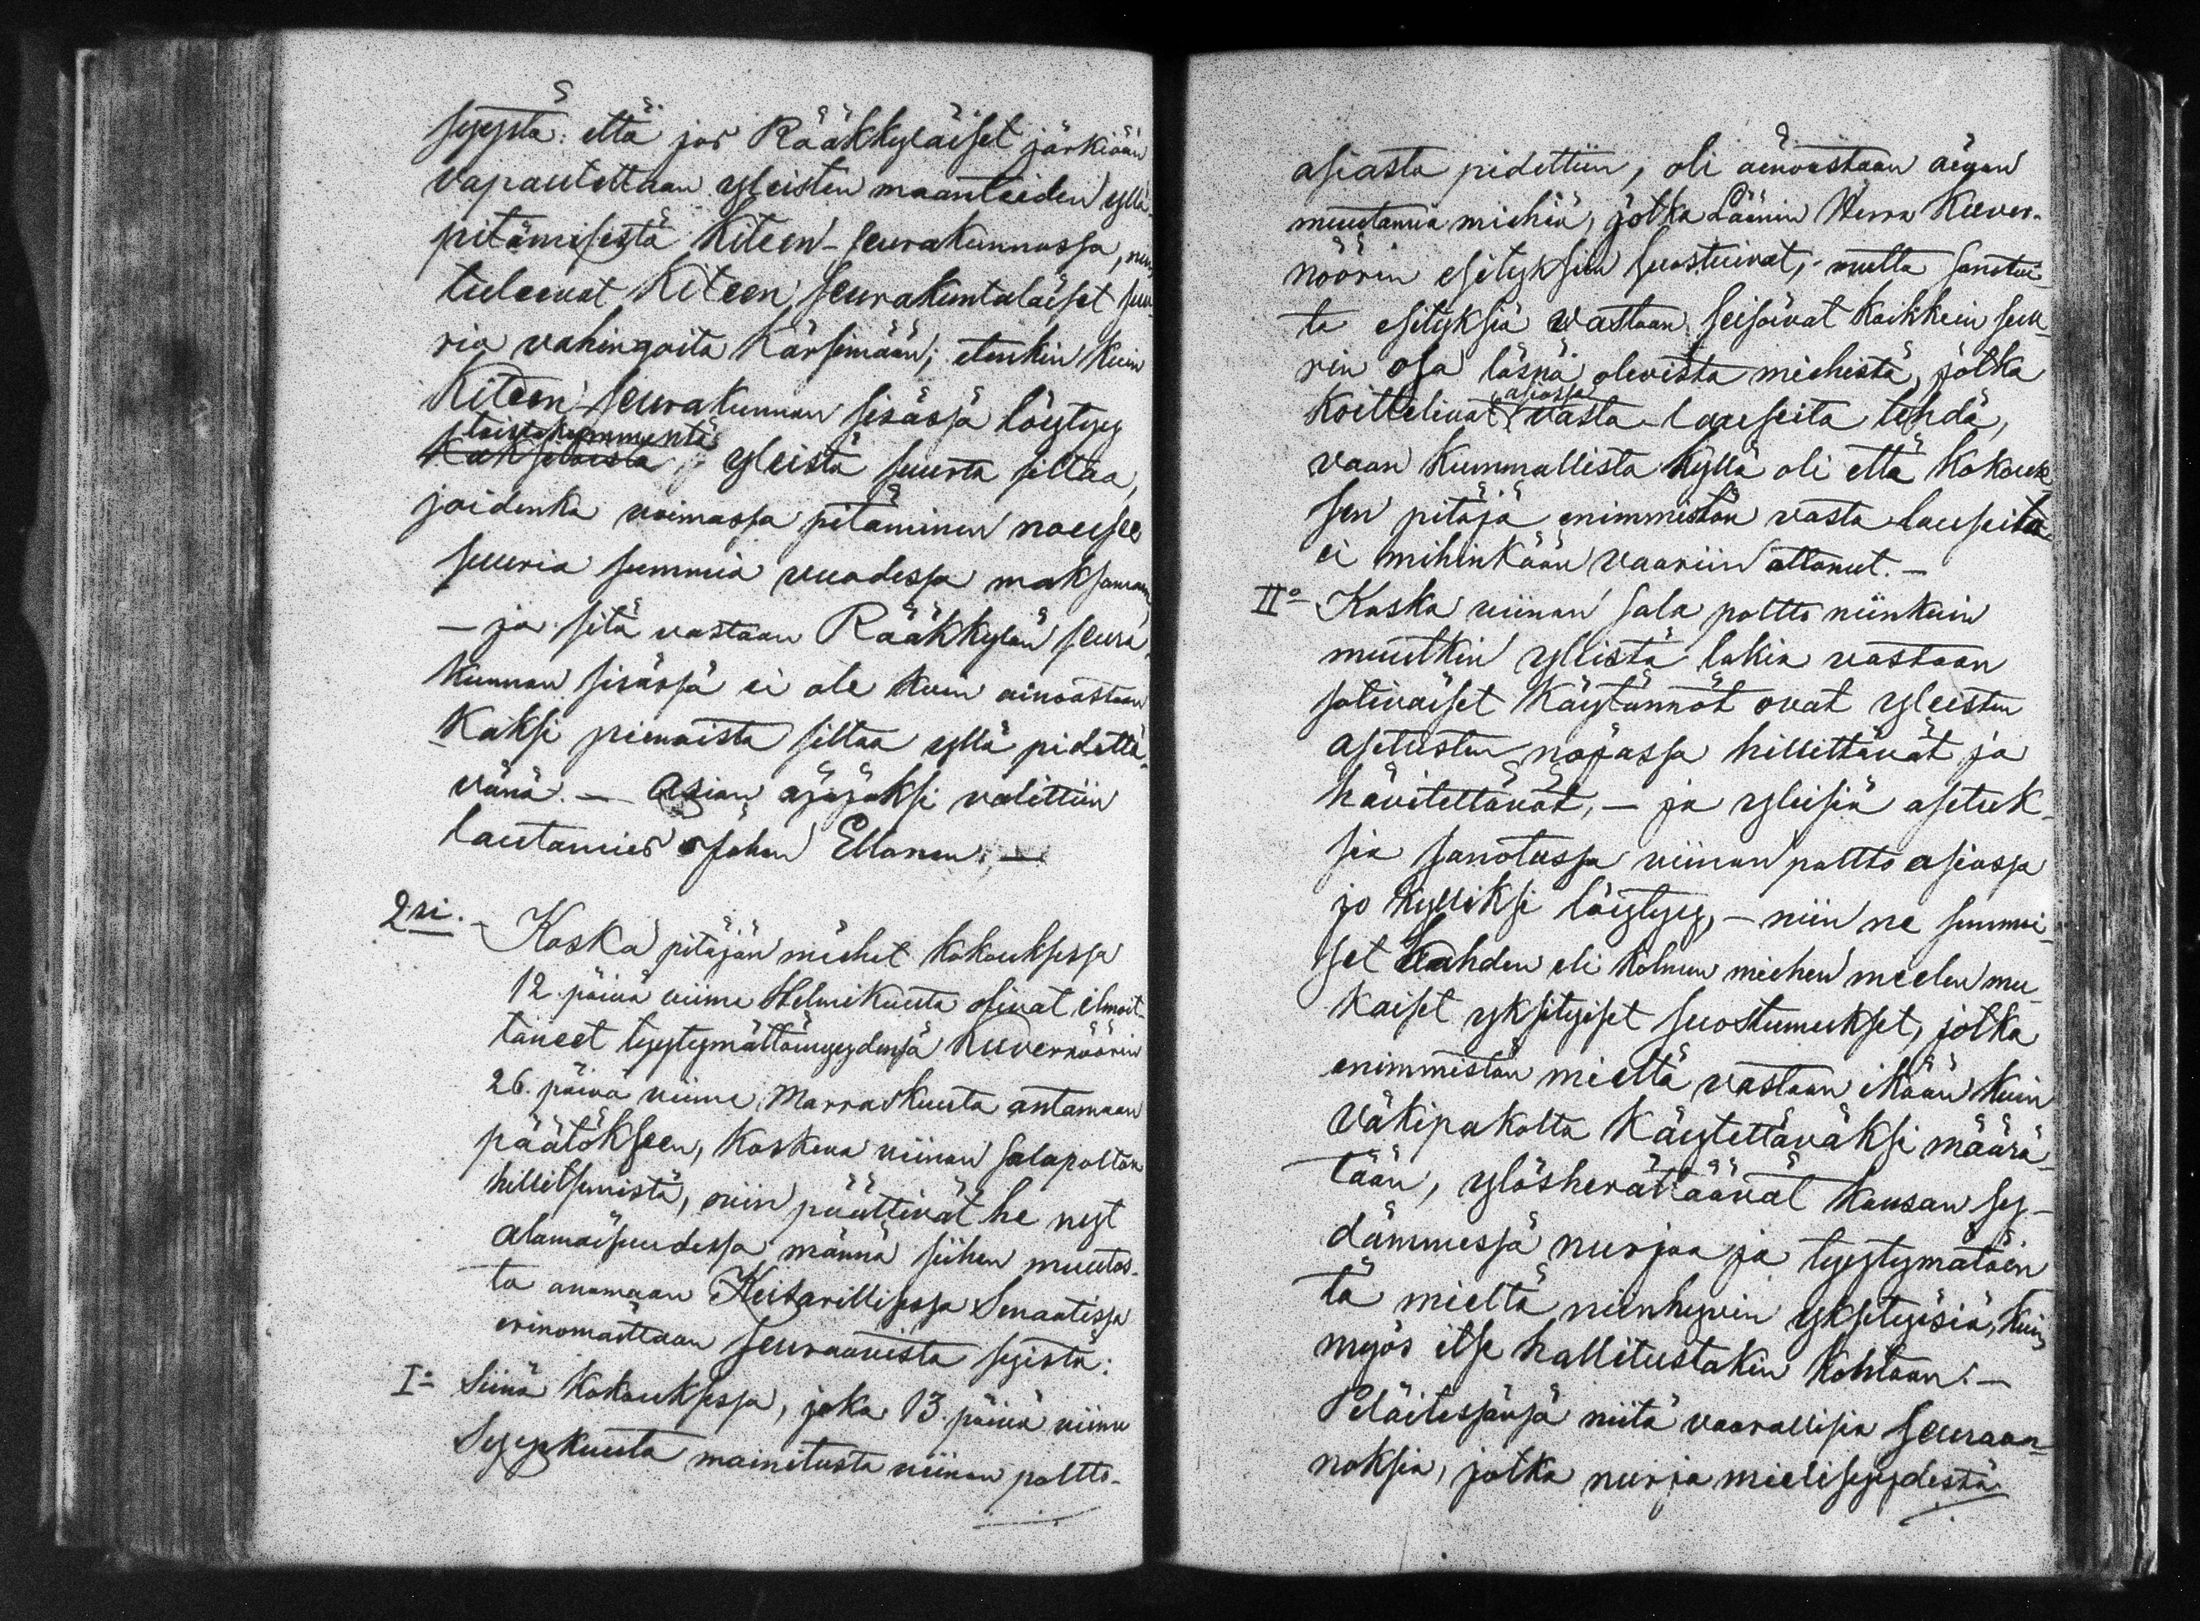 syystä: että jos Rääkkyläiset järkiään
vapautettaan yleisten maanteiden yllä-
pitämisestä Kiteen-seurakunnassa, niin
tuleevat Kiteen seurakuntalaiset suu-
ria vahingoita kärsimään; etenkin kuin
Kiteen seurakunnan sisässä löytyy
toistakymmentä
yleistä suurta siltaa,
joidenka voimassa pitäminen nousee
suuria summia vuodessa maksamaan
— ja sitä vastaan Rääkkylän seura-
kunnan sisässä ei ole kuin ainoastaan
kaksi pienoista siltaa yllä pidettä-
vänä. — Asian ajajaksi valittiin
lautamies Johan Ellonen. —
2si. — Koska pitäjän miehet kokouksessa
12 päivä viime Helmikuuta olivat ilmoit-
taneet tyytymättömyydensä Kuvernöörin
26. päivä viime Marraskuuta antamaan
päätökseen, koskeva viinan salapolton
hillitsemistä, niin päättivät he nyt
alamaisuudessa männä siihen muutos-
ta anomaan Keisarillisessa Senaatissa
erinomattaan seuraavista syistä:
I:o Siinä kokouksessa, joka 13. päivä viime
Syyskuuta mainitusta viinan poltto-
asiasta pidettiin, oli ainoastaan aigan
muutamia miehiä, jotka Läänin Herra Kuver-
nöörin esityksiin suostuivat, mutta sanotui-
ta esityksiä vastaan seisoivat kaikkein suu-
rin osa läsnä olevista miehistä, jotka
asiassa
koittelivat vasta-lauseita tehdä,
vaan kummallista kyllä oli että kokouk-
sen pitäjä enimmistön vasta lauseita
ei mihinkään vaariin ottanut. —
II:o Koska viinan sala poltto niinkuin
muutkin yleistä lakia vastaan
sotivaiset käytännöt ovat yleisten
asetusten nojassa hillittävät ja
hävitettävät, — ja yleisiä asetuk-
sia sanotussa viinan poltto asiassa
jo kylliksi löytyy, — niin ne semmoi-
set kahden eli kolmen miehen meelen mu-
kaiset yksityiset suostumukset, jotka
enimmistön mieltä vastaan ikään kuin
väkipakolta käytettäväksi määrä-
tään, ylösherättäävät kansan sy-
dämmessä nurjaa ja tyytymätöin-
tä mieltä niinhyvin yksityisiä, kuin
myös itse hallitustakin kohtaan. —
Peläitessänsä niitä vaarallisia seuraa-
noksia, jotka nurja mielisyydestä